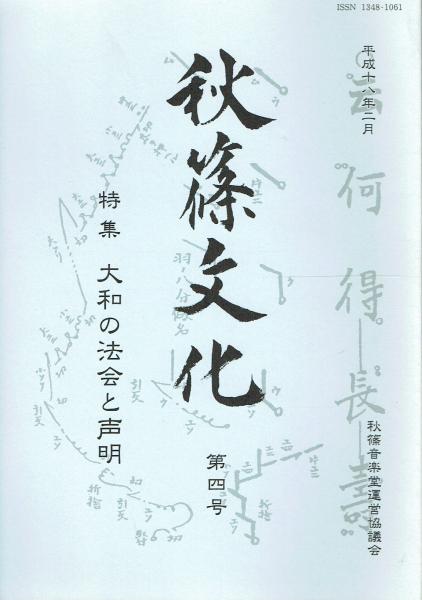 ISSN 1348-1061
平成十八年二月
云何得長壽
秋篠文化
第四号
特集 大和の法会と声明
秋篠音楽堂運営協議会
羽ノ八分假名